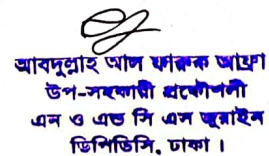 আবদুল্লাহ আল ফারুক আফ্রা
উপ-সহকারী প্রকৌশলী
এন ও এন্ড সি এস জুরাইন
ডিপিডিসি, ঢাকা ।